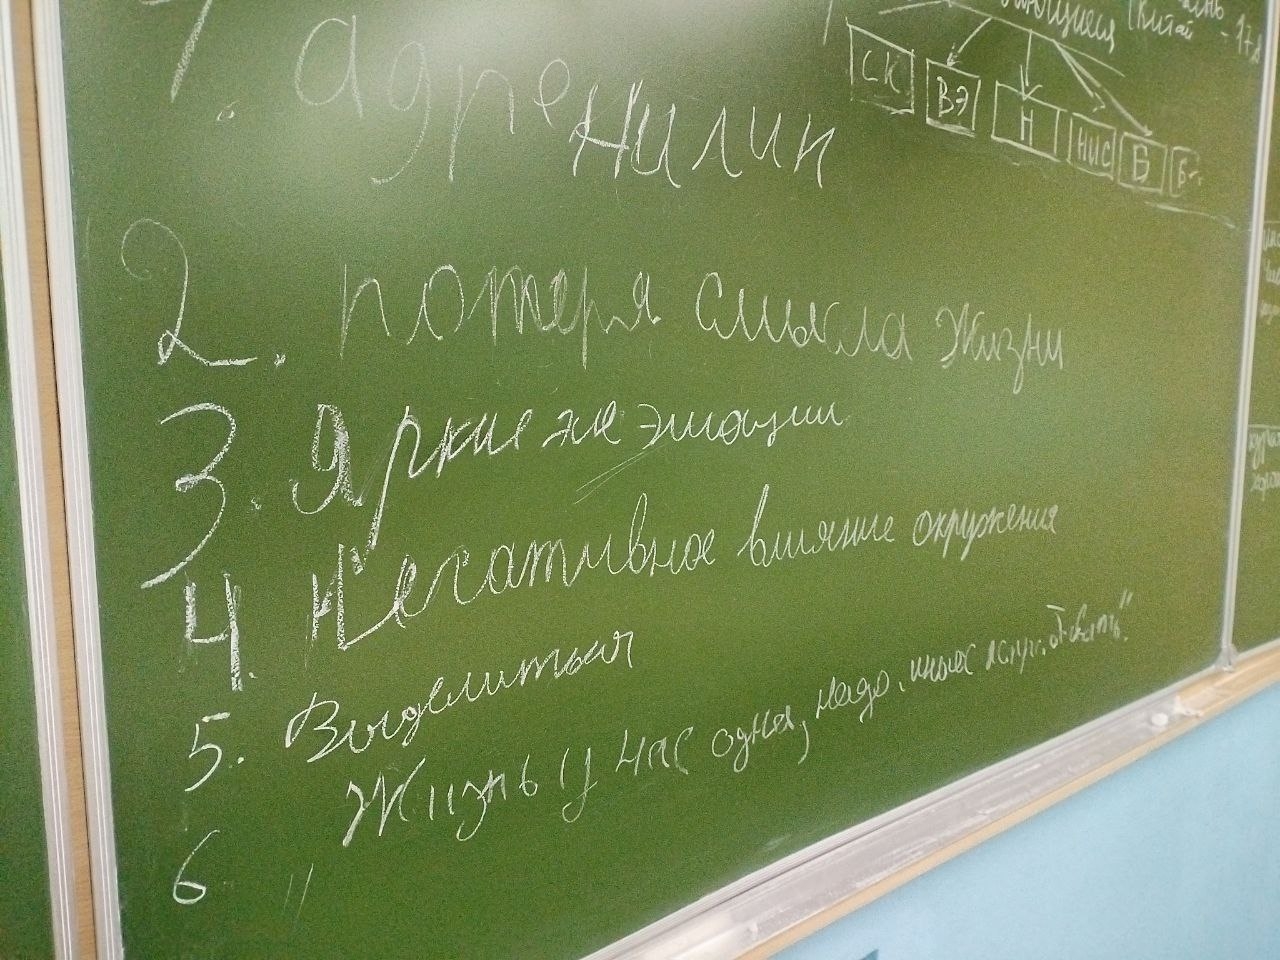 1. адренилин
2. потеря смысла жизни
3. Яркие же эмоции
4. Негативное влияние окружения
5. Выделиться
6 " Жизнь у нас одна, надо
(Китай
- 17
СК
ВЭ
Н
НИС
В
Б-